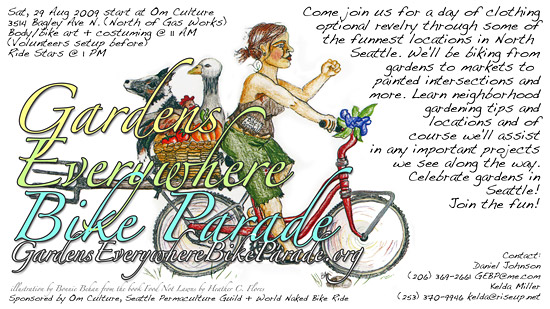 Sat, 29 Aug 2009 start at Om Culture
3514 Bagley Ave N. (North of Gas Works)
Body/bike art + costuming @ 11 AM
(Volunteers setup before)
Ride Stars @ 1 PM
Come join us for a day of clothing
optional revelry through some of
the funnest locations in North
Seattle. We'll be biking from
gardens to markets to
painted intersections and
more. Learn neighborhood
gardening tips and
locations and of
course we'll assist
in any important projects
we see along the way.
Celebrate gardens in
Seattle!
Join the fun!
Gardens
Everywhere
Bike Parade
GardensEverywhereBikeParade.org
illustration by Bonnie Behan from the book Food Not Lawns by Heather C. Flores
Sponsored by Om Culture, Seattle Permaculture Guild + World Naked Bike Ride
Contact:
Daniel Johnson
(206) 369-2661 GEBP@me.com
Kelda Miller
(253) 370-9946 kelda@riseup.net